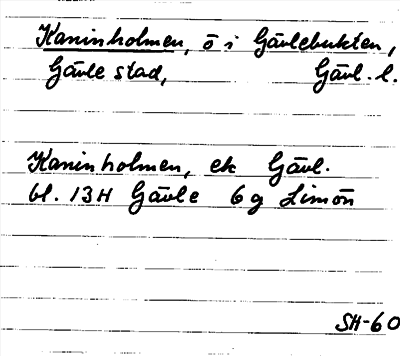 Kaninholmen, ö i Gävlebukten,
Gävle stad, Gävl. l.
Kaninholmen, ek Gävl.
bl. 13H Gävle 6g Limön
SH-60